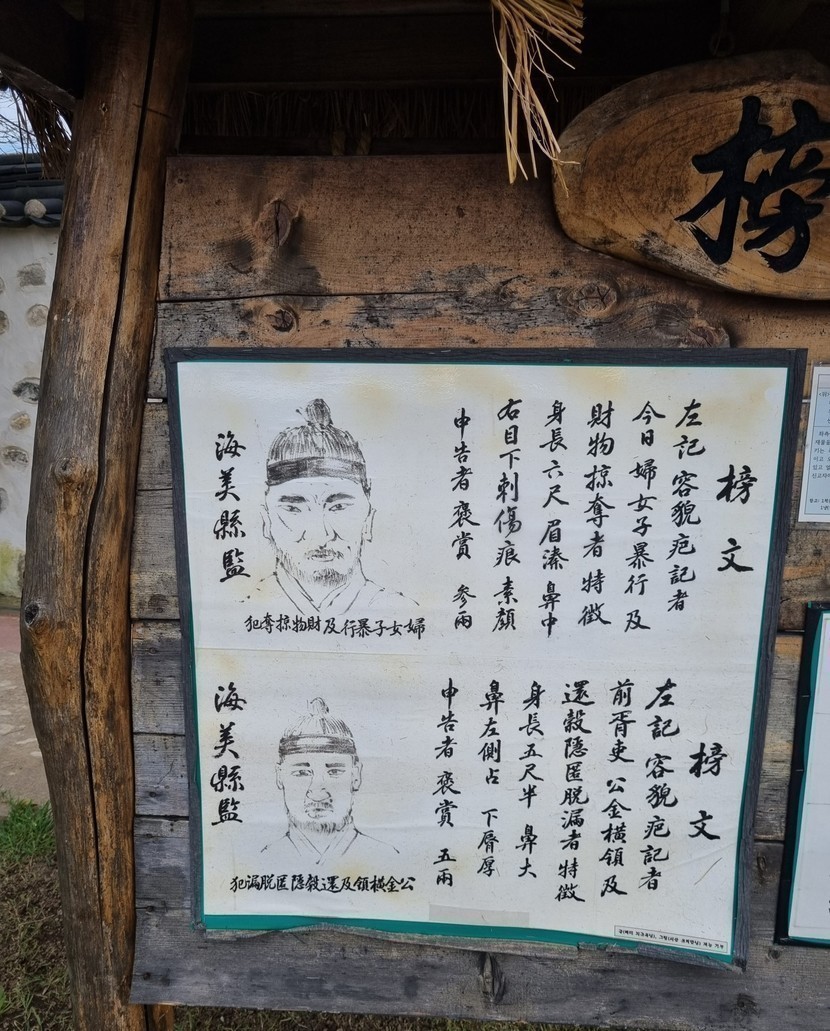 榜
榜文
左記 容貌疤記者
今日 婦女子暴行 及
財物掠奪者 特徵
身長六尺 眉溱 鼻中
右目下刺傷痕 素顔
申告者 褒賞 參兩
婦女子暴行及財物掠奪犯
海美縣監
榜文
左記 容貌疤記者
前胥吏 公金橫領及
還穀隱匿脫漏者 特徵
身長五尺半 鼻大
鼻左側占 下脣厚
申告者 褒賞 五兩
公金橫領及還穀隱匿脫漏犯
海美縣監